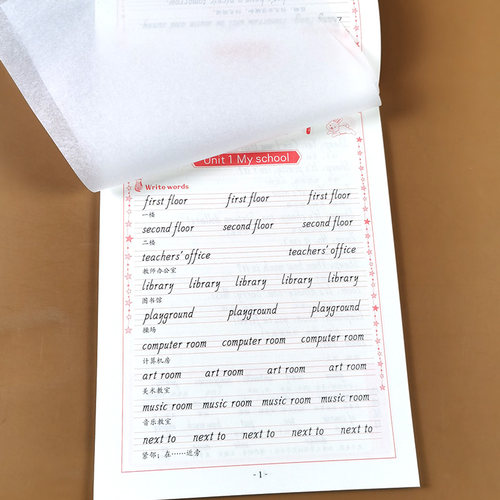 Unit 1 My school
Write words
first floor first floor first floor
一楼
second floor second floor second floor
二楼
teachers' office teachers' office
教师办公室
library library library library library
图书馆
playground playground playground
操场
computer room computer room computer room
计算机房
art room art room art room art room
美术教室
music room music room music room music room
音乐教室
next to next to next to next to next to
紧邻；在……近旁
- 1 -